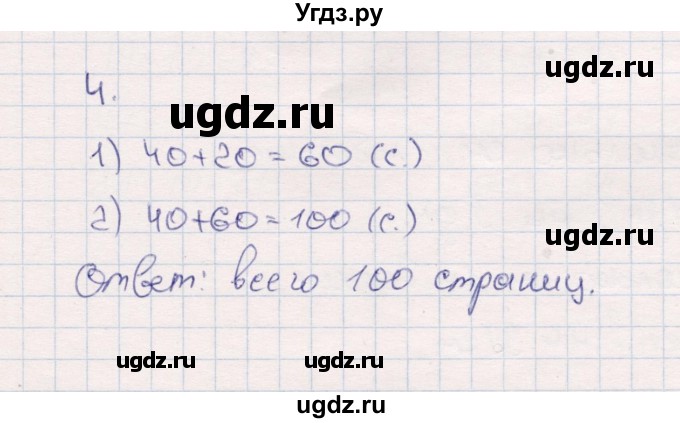 Угдз.ру
ugdz.ru
4.
ugdz.ru
1) 40+20=60 (с.)
2) 40+60=100 (с.)
ugdz.ru
Ответ: всего 100 страниц.
ugdz.ru
ugdz.ru
ugdz.ru